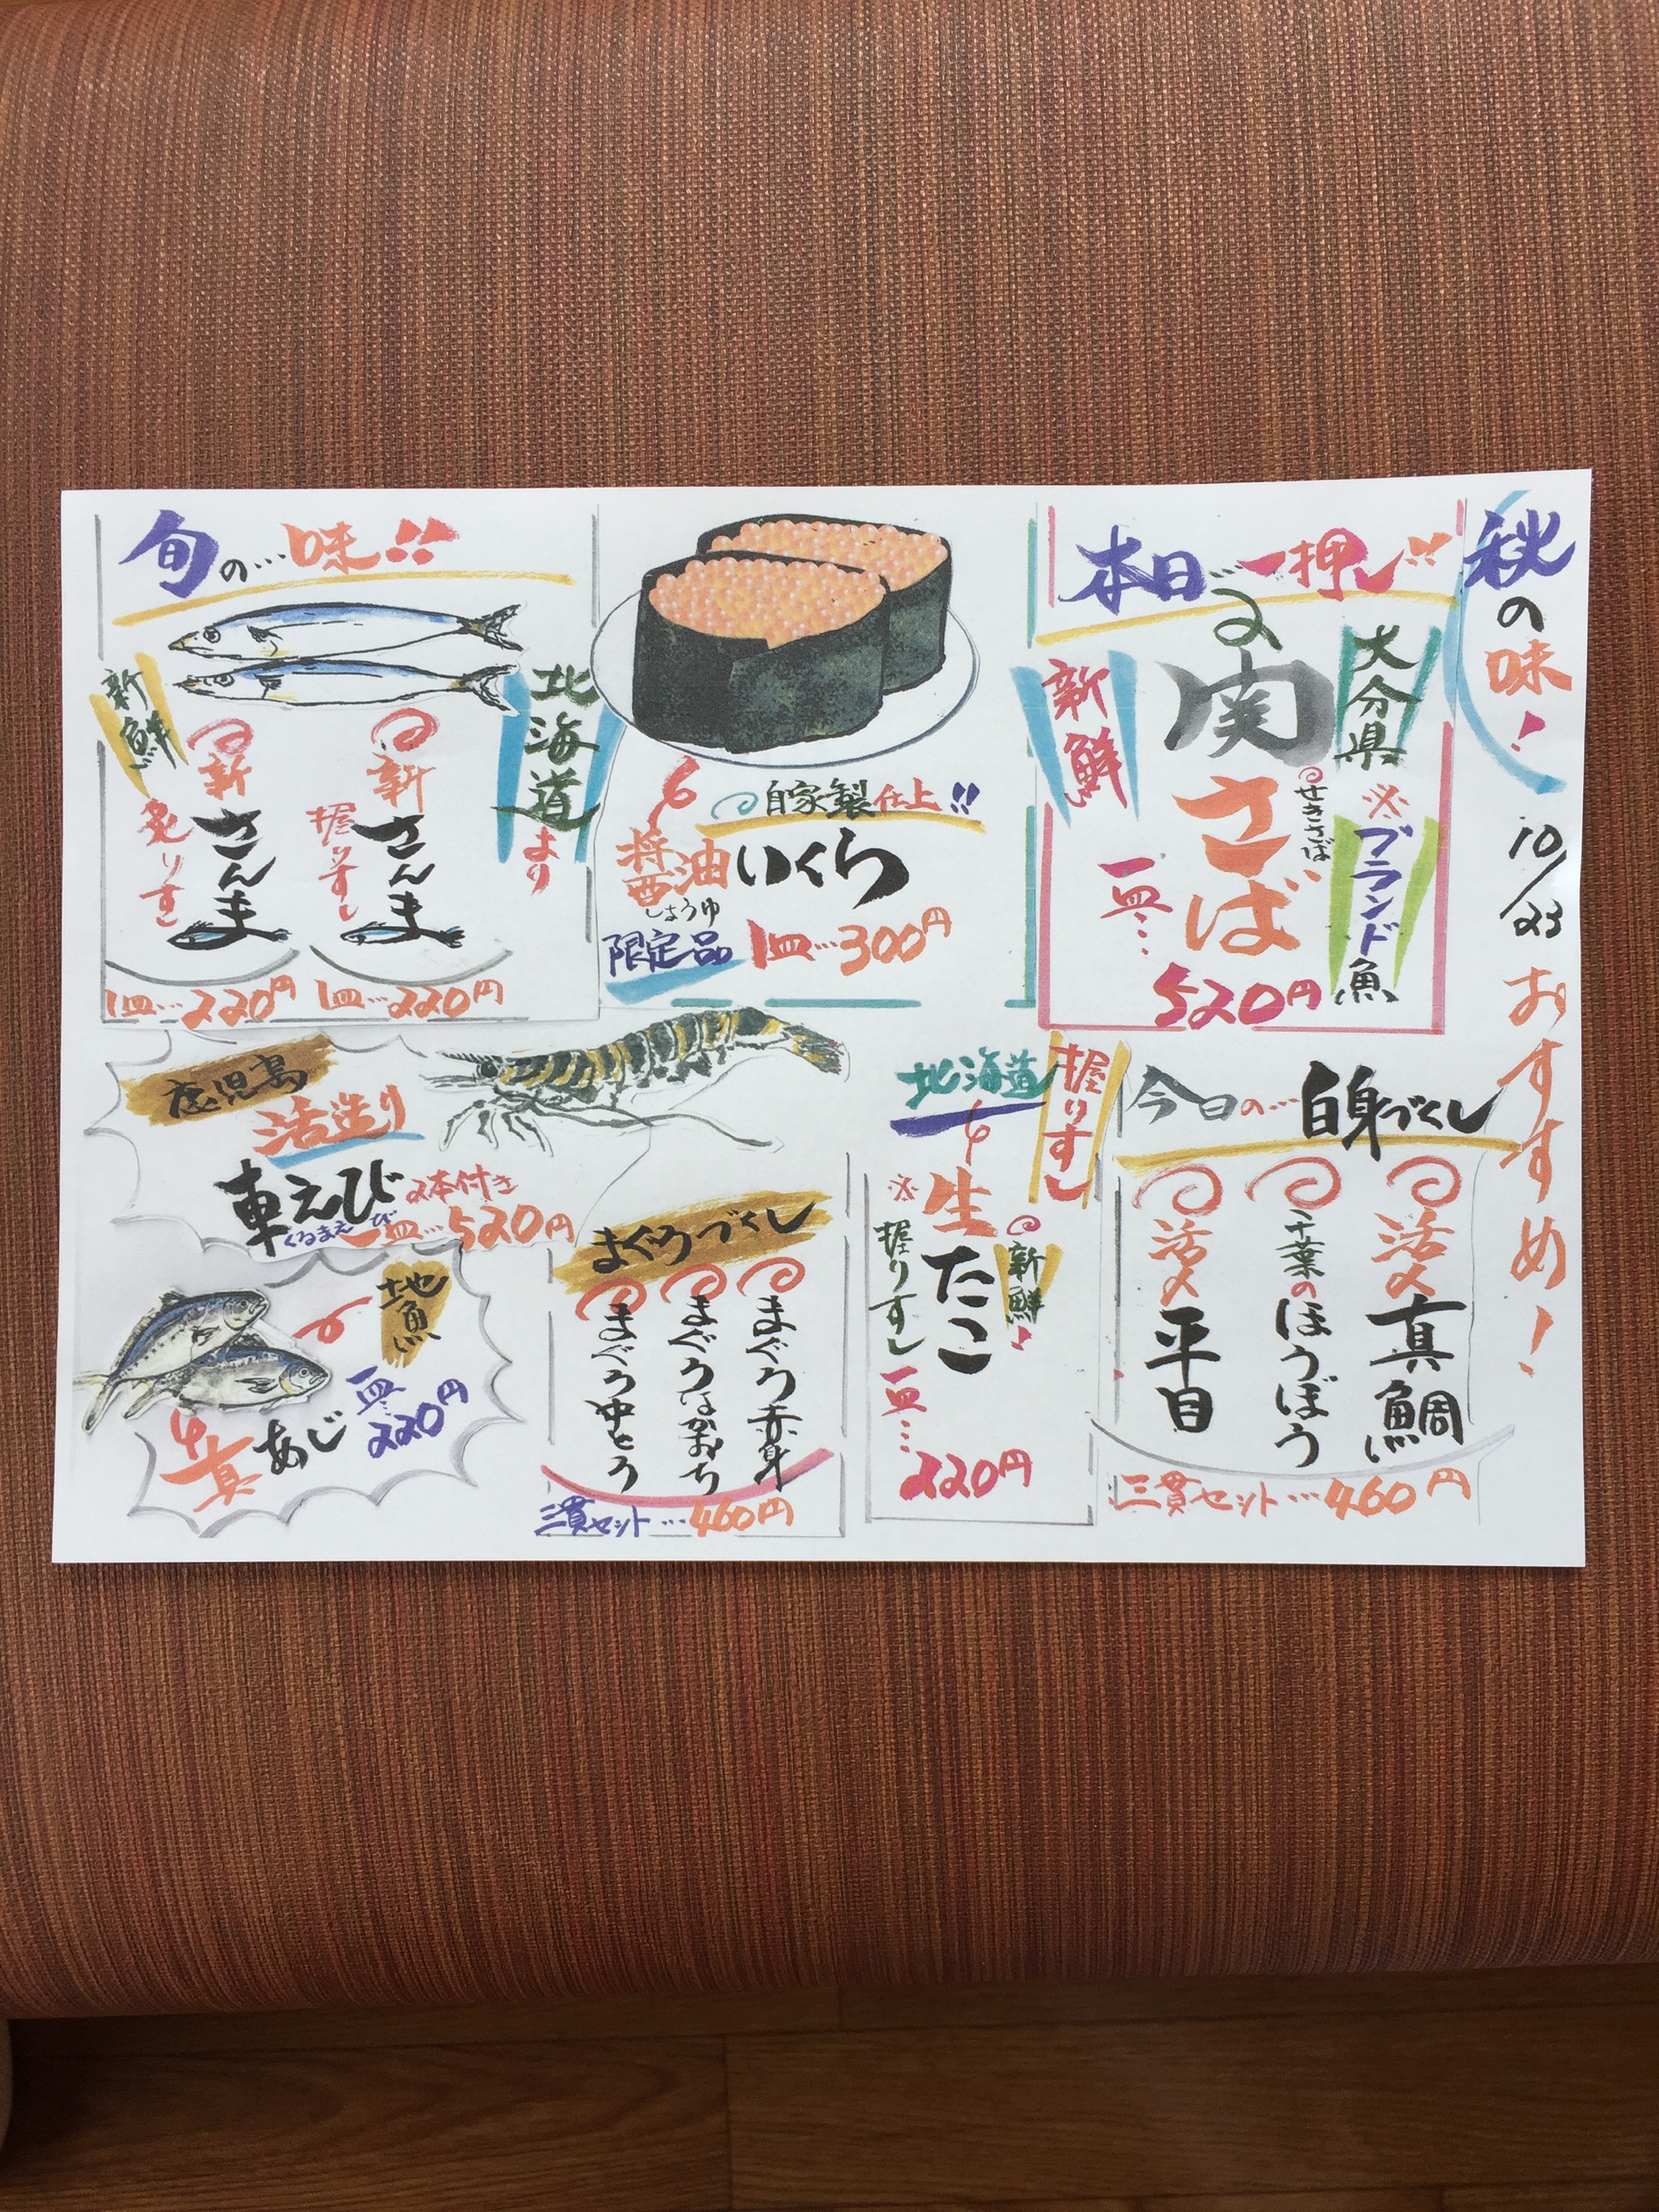 秋の味！
10/23
おすすめ！
本日の一押し!!
大分県
※ブランド魚
関さば
せきさば
新鮮
一皿…
520円
自家製仕上!!
醤油いくら
しょうゆ
限定品
1皿…300円
旬の…味!!
北海道より
新鮮
新さんま
握りすし
1皿…220円
新さんま
炙りすし
1皿…220円
今日の…白身づくし
活〆真鯛
千葉のほうぼう
活〆平目
三貫セット…460円
北海道
握りすし
※生たこ
新鮮！
握りすし
一皿…
220円
鹿児島
活造り
車えび
くるまえび
2本付き
一皿…520円
まぐろづくし
まぐろ赤身
まぐろはがおち
まぐろ中とろ
三貫セット…460円
地魚
真あじ
一皿…
220円